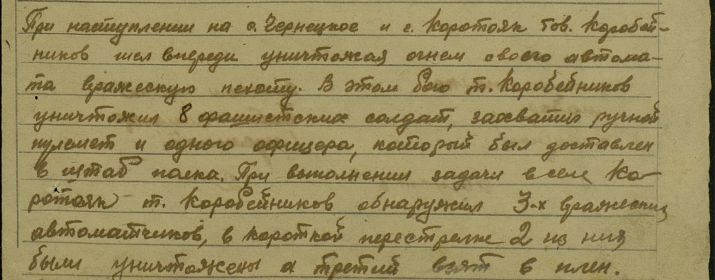 При наступлении на с. Чернецкое и с. Коротояк тов. Коробей-
ников шел впереди уничтожая огнем своего автома-
та вражескую пехоту. В этом бою т. Коробейников
уничтожил 8 фашистских солдат, захватил ручной
пулемет и одного офицера, который был доставлен
в штаб полка. При выполнении задачи в селе Ко-
ротояк т. Коробейников обнаружил 3-х вражеских
автоматчиков, в короткой перестрелке 2 из них
были уничтожены а третий взят в плен.